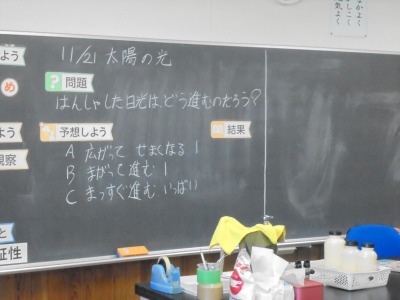 11/21 太陽の光
よう
? 問題
め
はんしゃした日光は、どう進むのだろう?
よう
予想しよう
結果
観察
A 広がって せまくなる 1
B まがって進む 1
C まっすぐ進む いっぱい
と
証性